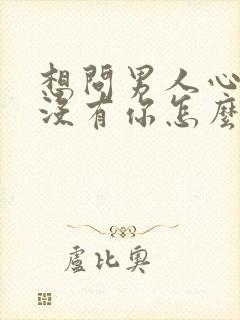 想問男人心
沒有你怎麼
盧比奧